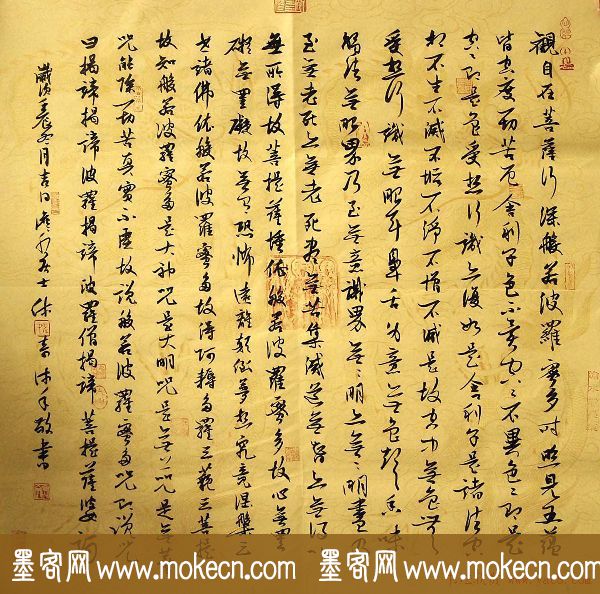 觀自在菩薩行深般若波羅蜜多時照見五蘊
皆空度一切苦厄舍利子色不異空〻不異色〻即是
空〻即是色受想行識亦復如是舍利子是諸法空
相不生不滅不垢不淨不增不減是故空中無色無
受想行識無眼耳鼻舌身意無色聲香味
觸法無眼界乃至無意識界無〻明亦無〻明盡乃
至無老死亦無老死盡無苦集滅道無智亦無得
無所得故菩提薩埵依般若波羅蜜多故心無罣
礙無罣礙故無有恐怖遠離顛倒夢想究竟涅槃三
世諸佛依般若波羅蜜多故得阿耨多羅三藐三菩提
故知般若波羅蜜多是大神咒是大明咒是無上咒是無等
咒能除一切苦真實不虛故說般若波羅蜜多咒即說咒
曰揭諦揭諦波羅揭諦波羅僧揭諦菩提薩婆訶
歲辰月吉日居士敬書
墨客网 www.mokecn.com 墨客网 www.mokecn.com